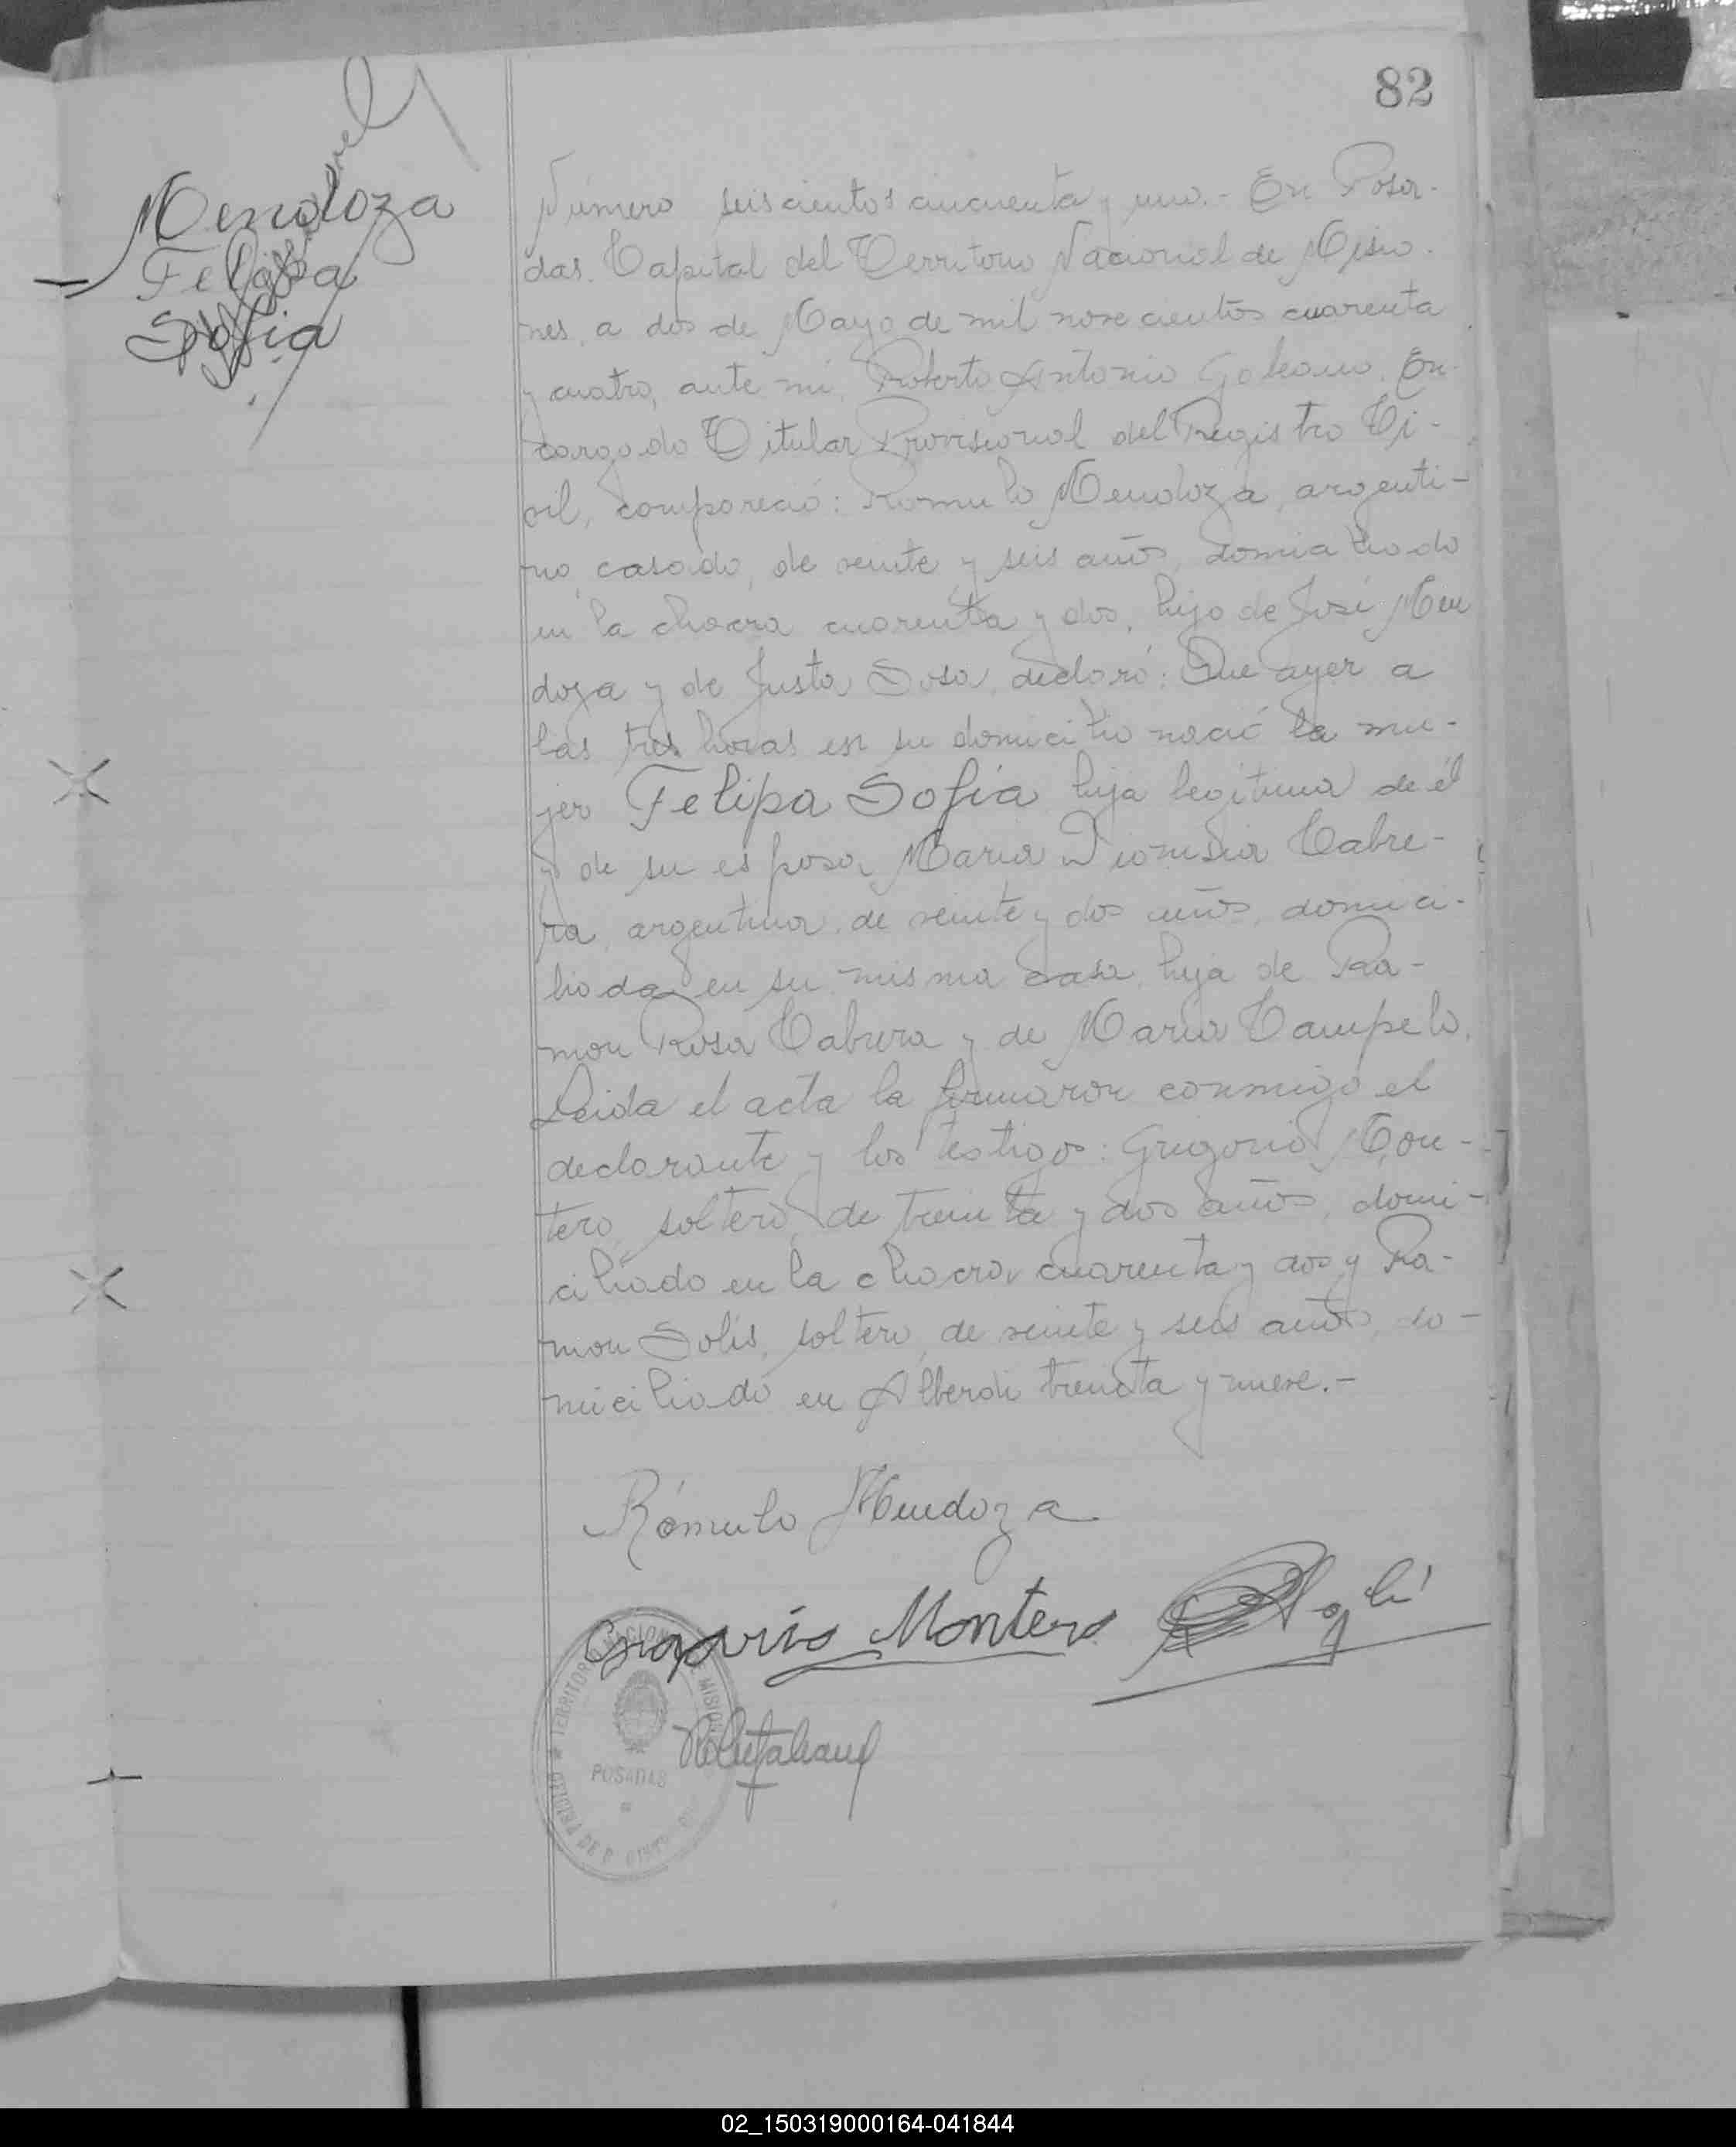 82
Mendoza
Felipa
Sofia
Número seiscientos cincuenta y uno.- En Posa-
das. Capital del Territorio Nacional de Misio-
nes, a dos de Mayo de mil novecientos cuarenta
y cuatro, ante mi, Roberto Antonio Galeano, En-
cargado Titular Provisional del Registro Ci-
vil, compareció: Romulo Mendoza, argenti-
no, casado, de veinte y seis años, domiciliado
en la chacra cuarenta y dos, hijo de José Men
doza y de Justa Sosa, declaró: Que ayer a
las tres horas en su domicilio nació la mu-
jer Felipa Sofia hija legítima de él
y de su esposa Maria Dionisia Cabre-
ra, argentina, de veinte y dos años, domici-
liada en su misma casa, hija de Ra-
mon Rosa Cabrera y de Maria Campelo.
Leida el acta la firmaron conmigo el
declarante y los testigos: Gregorio Mon-
tero, soltero, de treinta y dos años, domi-
ciliado en la chacra cuarenta y dos y Ra-
mon Solis, soltero, de veinte y seis años, do-
miciliado en Alberdi treinta y nueve.-
Rómulo Mendoza
Gregorio Montero
TERRITORIO NACIONAL DE MISIONES
POSADAS
02_150319000164-041844